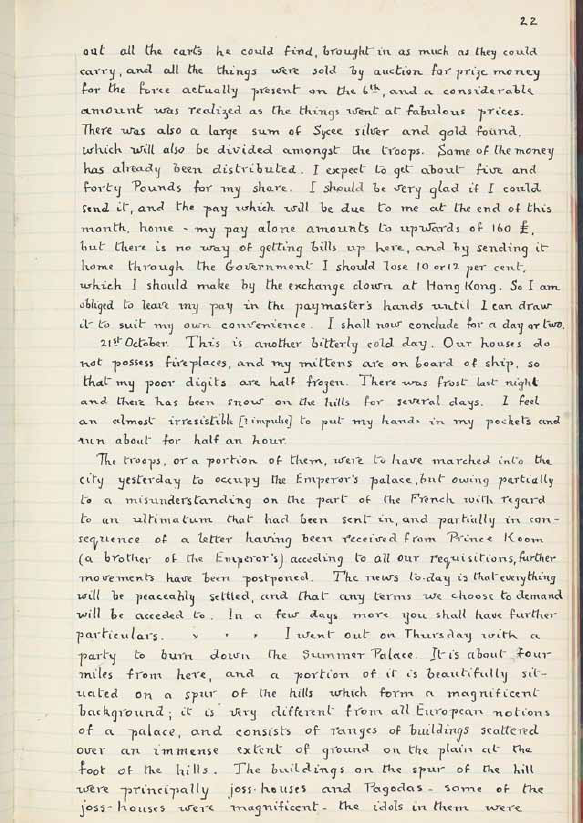 22
out all the carts he could find, brought in as much as they could
carry, and all the things were sold by auction for prize money
for the force actually present on the 6th, and a considerable
amount was realized as the things went at fabulous prices.
There was also a large sum of Sycee silver and gold found,
which will also be divided amongst the troops. Some of the money
has already been distributed. I expect to get about five and
forty Pounds for my share. I should be very glad if I could
send it, and the pay which will be due to me at the end of this
month, home - my pay alone amounts to upwards of 160 £,
but there is no way of getting bills up here, and by sending it
home through the Government I should lose 10 or 12 per cent,
which I should make by the exchange down at Hong Kong. So I am
obliged to leave my pay in the paymaster's hands until I can draw
it to suit my own convenience. I shall now conclude for a day or two.
21st October. This is another bitterly cold day. Our houses do
not possess fireplaces, and my mittens are on board of ship, so
that my poor digits are half frozen. There was frost last night
and there has been snow on the hills for several days. I feel
an almost irresistible [? impulse] to put my hands in my pockets and
run about for half an hour.
The troops, or a portion of them, were to have marched into the
city yesterday to occupy the Emperor's palace, but owing partially
to a misunderstanding on the part of the French with regard
to an ultimatum that had been sent in, and partially in con-
sequence of a letter having been received from Prince Koom
(a brother of the Emperor's) acceding to all our requisitions, further
movements have been postponed. The news to-day is that everything
will be peaceably settled, and that any terms we choose to demand
will be acceded to. In a few days more you shall have further
particulars. , , , I went out on Thursday with a
party to burn down the Summer Palace. It is about four
miles from here, and a portion of it is beautifully sit-
uated on a spur of the hills which form a magnificent
background; it is very different from all European notions
of a palace, and consists of ranges of buildings scattered
over an immense extent of ground on the plain at the
foot of the hills. The buildings on the spur of the hill
were principally joss-houses and Pagodas - some of the
joss-houses were magnificent - the idols in them were